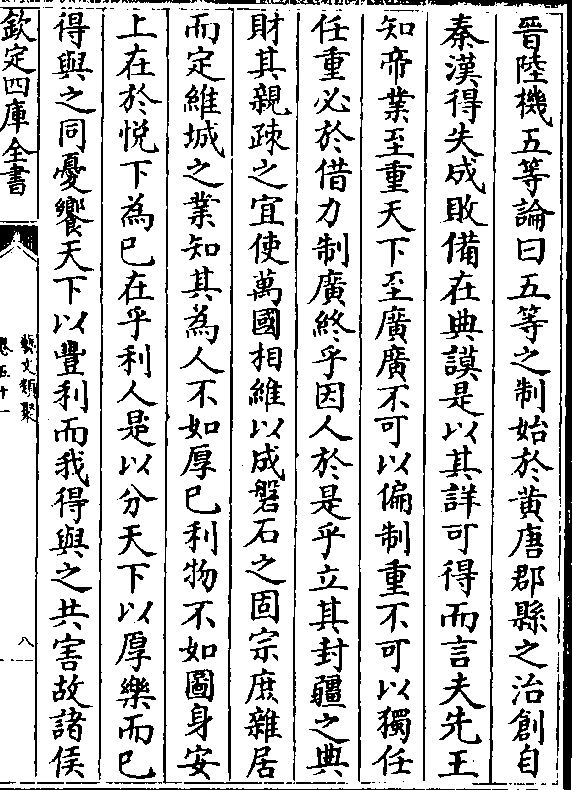 晉陸機五等論曰五等之制始於黄唐郡縣之治創自
秦漢得失成敗備在典謨是以其詳可得而言夫先王
知帝業至重天下至廣廣不可以偏制重不可以獨任
任重必於借力制廣終乎因人於是乎立其封疆之典
財其親疎之宜使萬國相維以成磐石之固宗庶雜居
而定維城之業知其為人不如厚已利物不如圖身安
上在於悅下為已在乎利人是以分天下以厚樂而已
得與之同憂饗天下以豐利而我得與之共害故諸侯
欽定四庫全書
藝文類聚
卷五十一
八